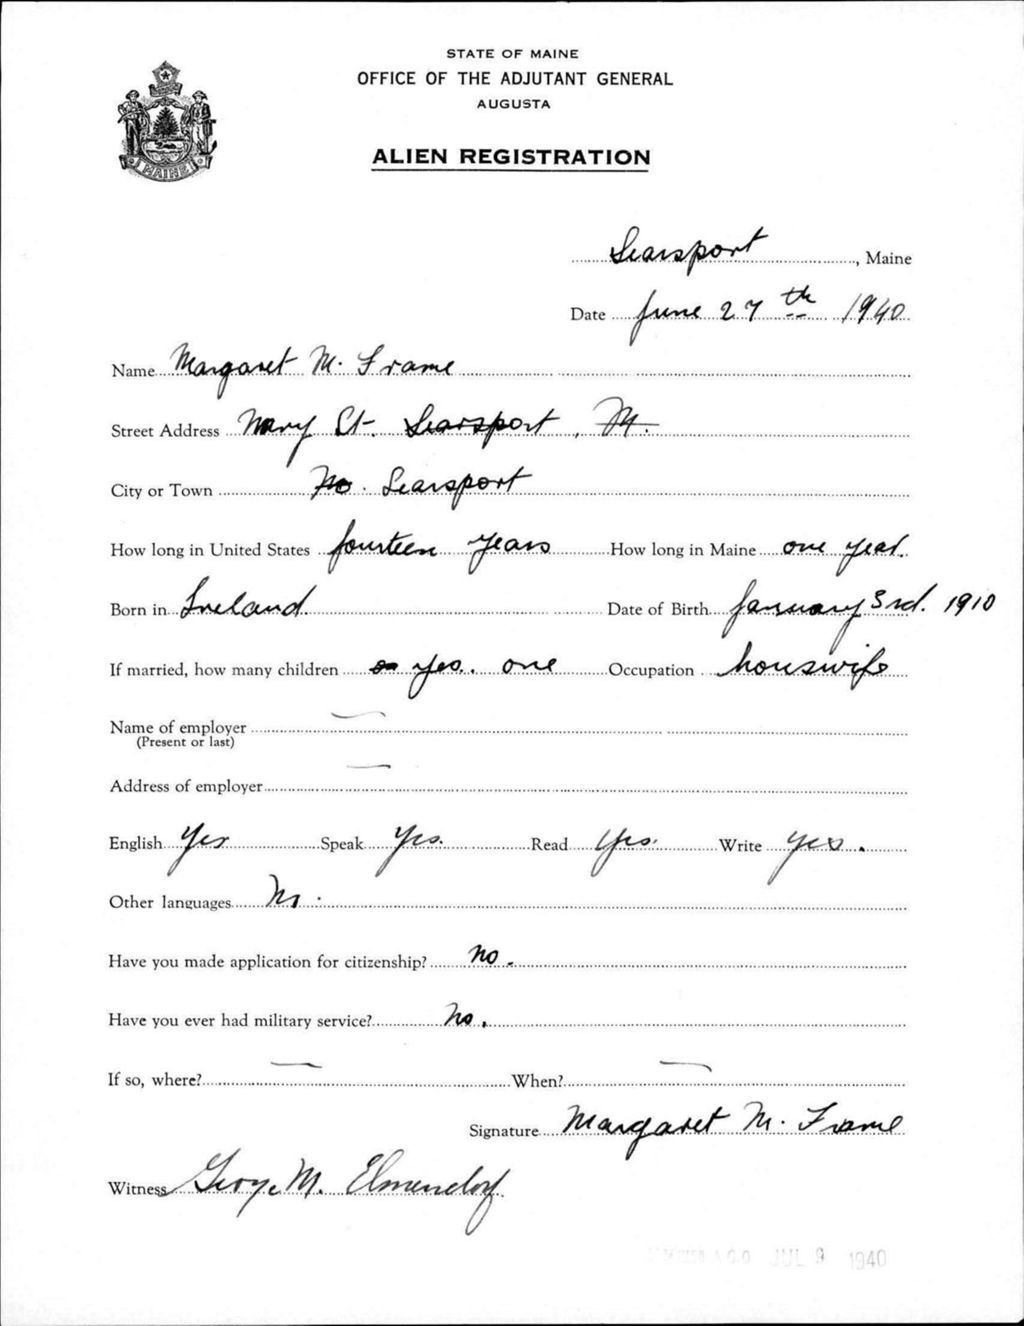 STATE OF MAINE
OFFICE OF THE ADJUTANT GENERAL
AUGUSTA
MAINE
ALIEN REGISTRATION
Searsport, Maine
Date June 27 th 1940
Name Margaret M. Frame
Street Address St. Searsport, M.
City or Town No. Searsport
How long in United States fourteen years How long in Maine one year.
Born in Ireland. Date of Birth January 3rd. 1910
If married, how many children yes. one Occupation houswife
Name of employer
(Present or last)
Address of employer
English Yes Speak Yes. Read Yes. Write yes.
Other languages No.
Have you made application for citizenship? No.
Have you ever had military service? No.
If so, where? When?
Signature Margaret M. Frame
Witness George M. Elmendorf
A.G.O JUL 9 1940